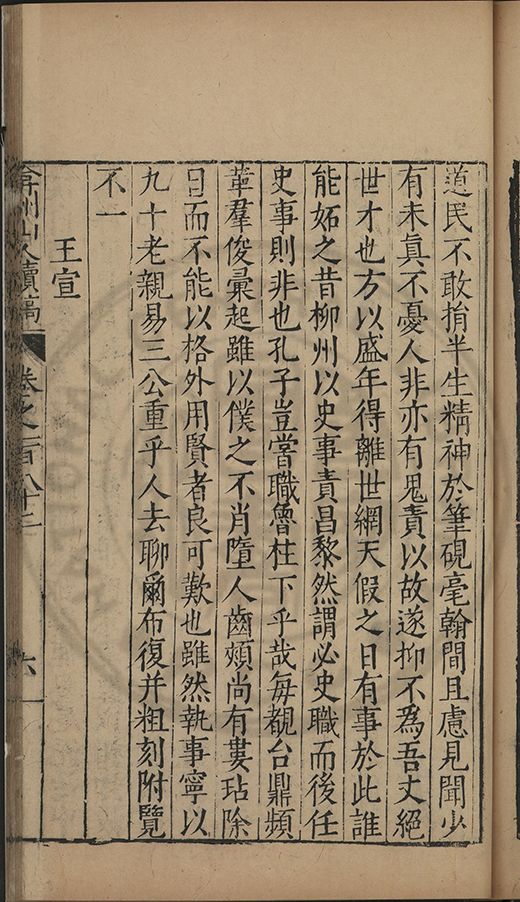 道民不敢捐半生精神於筆硯毫翰間且慮見聞少
有未真不憂人非亦有鬼責以故遂抑不為吾丈絕
世才也方以盛年得離世網天假之日有事於此誰
能妬之昔柳州以史事責昌黎然謂必史職而後任
史事則非也孔子豈嘗職魯柱下乎哉每覩台鼎頻
葦羣俊彙起雖以僕之不肖墮人齒頰尚有婁玷除
目而不能以格外用賢者良可歎也雖然執事寧以
九十老親易三公重乎人去聊爾布復并粗刻附覽
不一
王宣
弇州山人續稿
卷之一百八十二
六